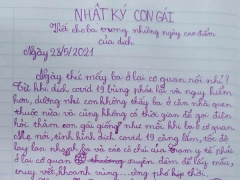 NHẬT KÝ CON GÁI
Viết cho ba trong những ngày cao điểm
của dịch
Ngày 28/5/2021
Ngày thứ mấy ba ở lại cơ quan rồi nhỉ?
Từ khi dịch covid 19 bùng phát lại và nguy hiểm
hơn, dường như con không thấy ba ở căn nhà quen
thuộc nữa và cũng không có thời gian để gọi điện
hỏi thăm con gái giống như mỗi khi ba ở cơ quan
Mẹ nói, tình hình dịch covid 19 căng lắm, tốc độ
lây lan nhanh, ba và các cô chú của trạm y tế phải
ở lại cơ quan xuyên đêm để lấy mẫu,
truy vết, khoanh vùng... cho kịp thời.